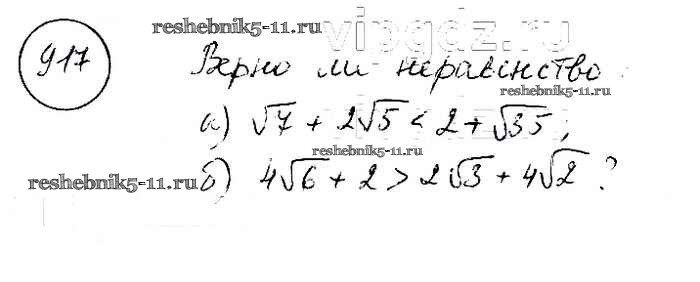 reshebnik5-11.ru
vipgdz.ru
917
Верно ли неравенство:
reshebnik5-11.ru
а) √7 + 2√5 < 2 + √35;
reshebnik5-11.ru
reshebnik5-11.ru
б) 4√6 + 2 > 2√3 + 4√2 ?